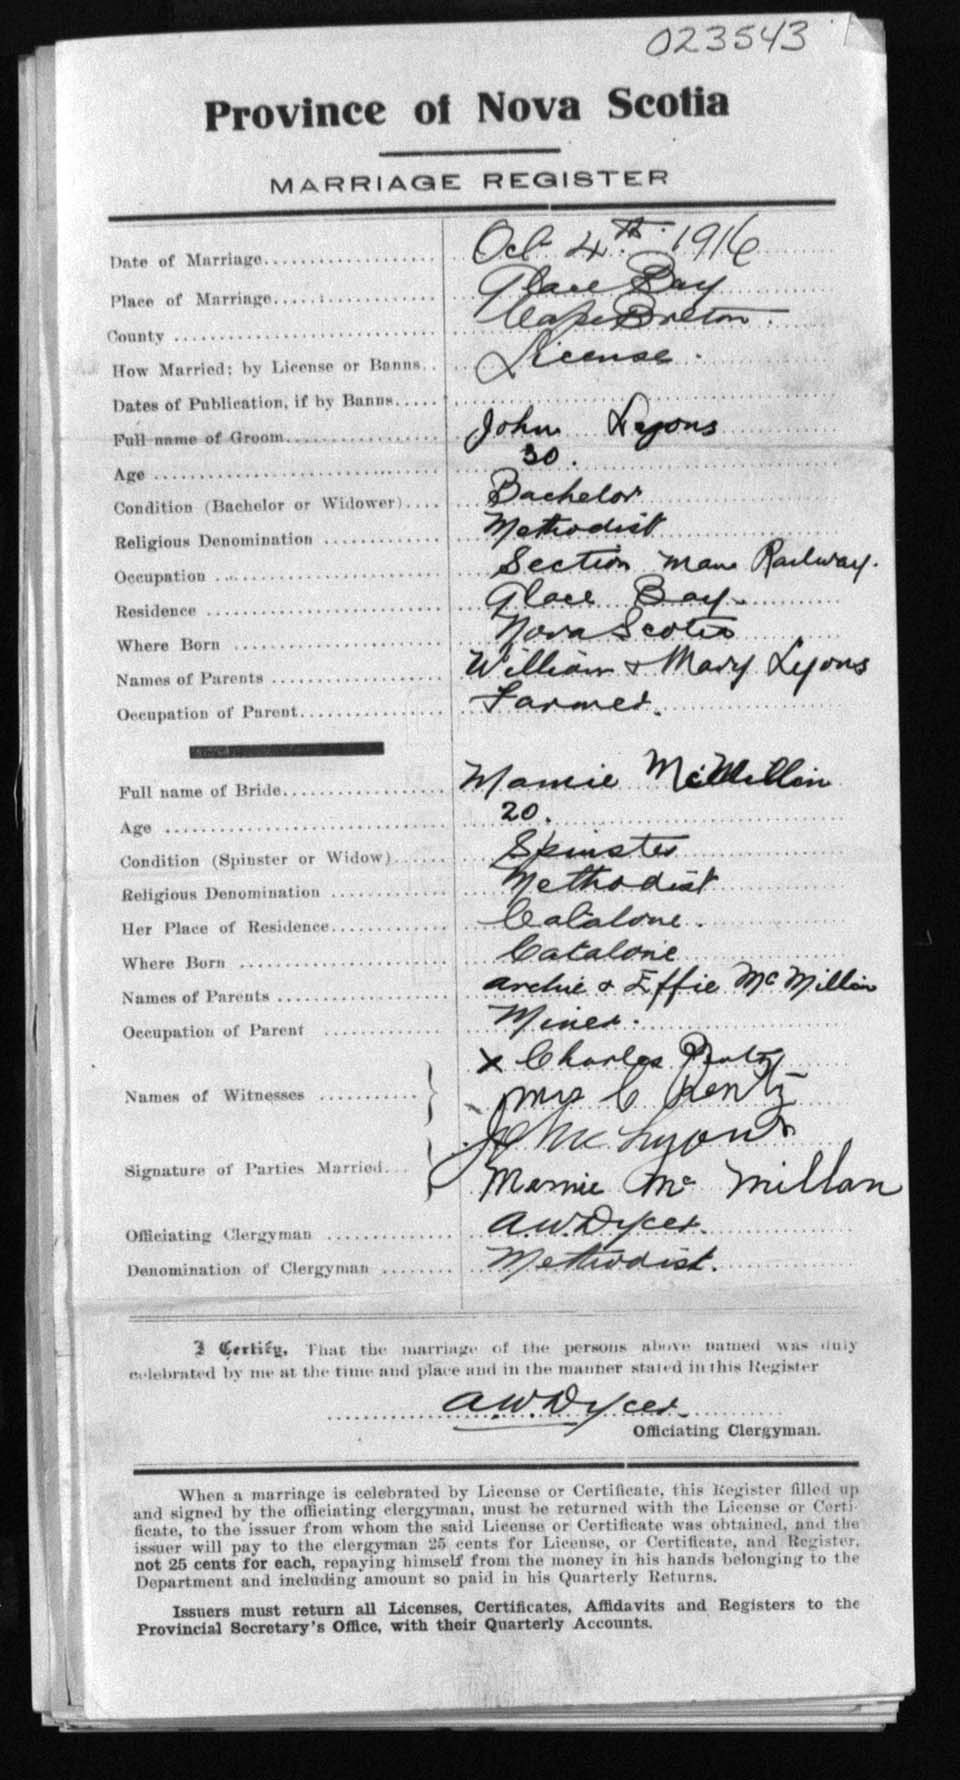 023543
Province of Nova Scotia
MARRIAGE REGISTER
Date of Marriage Oct 4th 1916
Place of Marriage Glace Bay
County Cape Breton.
How Married; by License or Banns License.
Dates of Publication, if by Banns
Full name of Groom John Lyons
Age 30.
Condition (Bachelor or Widower) Bachelor
Religious Denomination Methodist
Occupation Section man Railway.
Residence Glace Bay
Where Born Nova Scotia
Names of Parents William & Mary Lyons
Occupation of Parent Farmer.
Full name of Bride Mamie McMillin
Age 20.
Condition (Spinster or Widow) Spinster
Religious Denomination Methodist
Her Place of Residence Catalone.
Where Born Catalone
Names of Parents Archie & Effie McMillin
Occupation of Parent Miner.
x Charles Rentz
Names of Witnesses Mrs C Rentz
John Lyons
Signature of Parties Married Mamie Mc Millan
Officiating Clergyman A.W. Dycer.
Denomination of Clergyman Methodist.
I Certify, That the marriage of the persons above named was duly
celebrated by me at the time and place and in the manner stated in this Register
A.W. Dycer.
Officiating Clergyman.
When a marriage is celebrated by License or Certificate, this Register filled up
and signed by the officiating clergyman, must be returned with the License or Certi-
ficate, to the issuer from whom the said License or Certificate was obtained, and the
issuer will pay to the clergyman 25 cents for License, or Certificate, and Register,
not 25 cents for each, repaying himself from the money in his hands belonging to the
Department and including amount so paid in his Quarterly Returns.
Issuers must return all Licenses, Certificates, Affidavits and Registers to the
Provincial Secretary's Office, with their Quarterly Accounts.